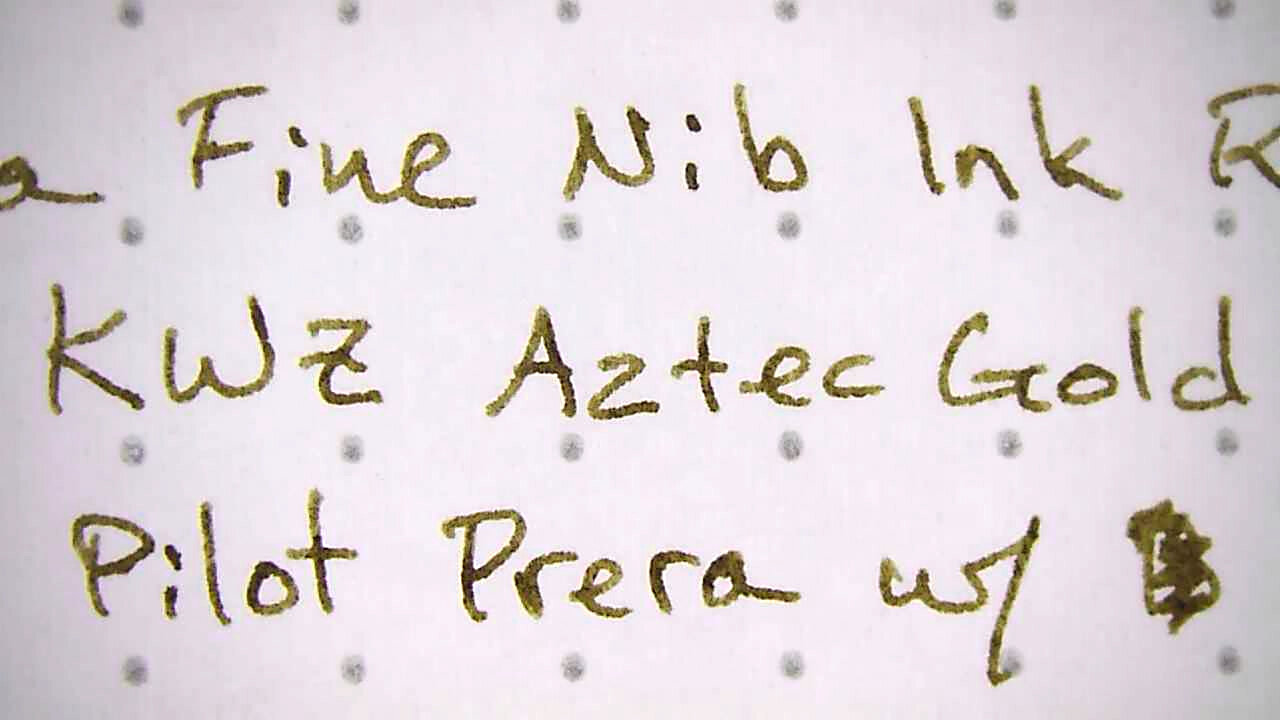 a Fine Nib Ink R
KWZ Aztec Gold
Pilot Prera w/